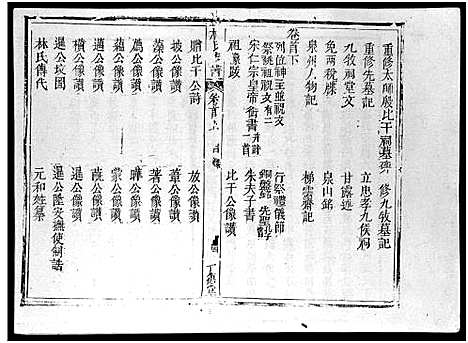 重修太師殷比干祠墓碑　修九牧墓記
重修先墓記　立忠孝九侯祠
九牧祠堂文　甘露述
免兩稅牒　泉山銘
泉州人物記　梯雲齋記
卷首下
列位神主並祝文　行祭禮儀節
祭祧祖祝文
宋仁宗皇帝御書　朱夫子書
祖像跋　比干公像讚
卷首上 目錄
贈比干公詩　放公像讚
披公像讚　葦公像讚
藻公像讚　著公像讚
薦公像讚　曄公像讚
蘊公像讚　蒙公像讚
邁公像讚　蔇公像讚
暹公坟圖　暹公隆安撫使制誥
林氏傳代　元和姓纂